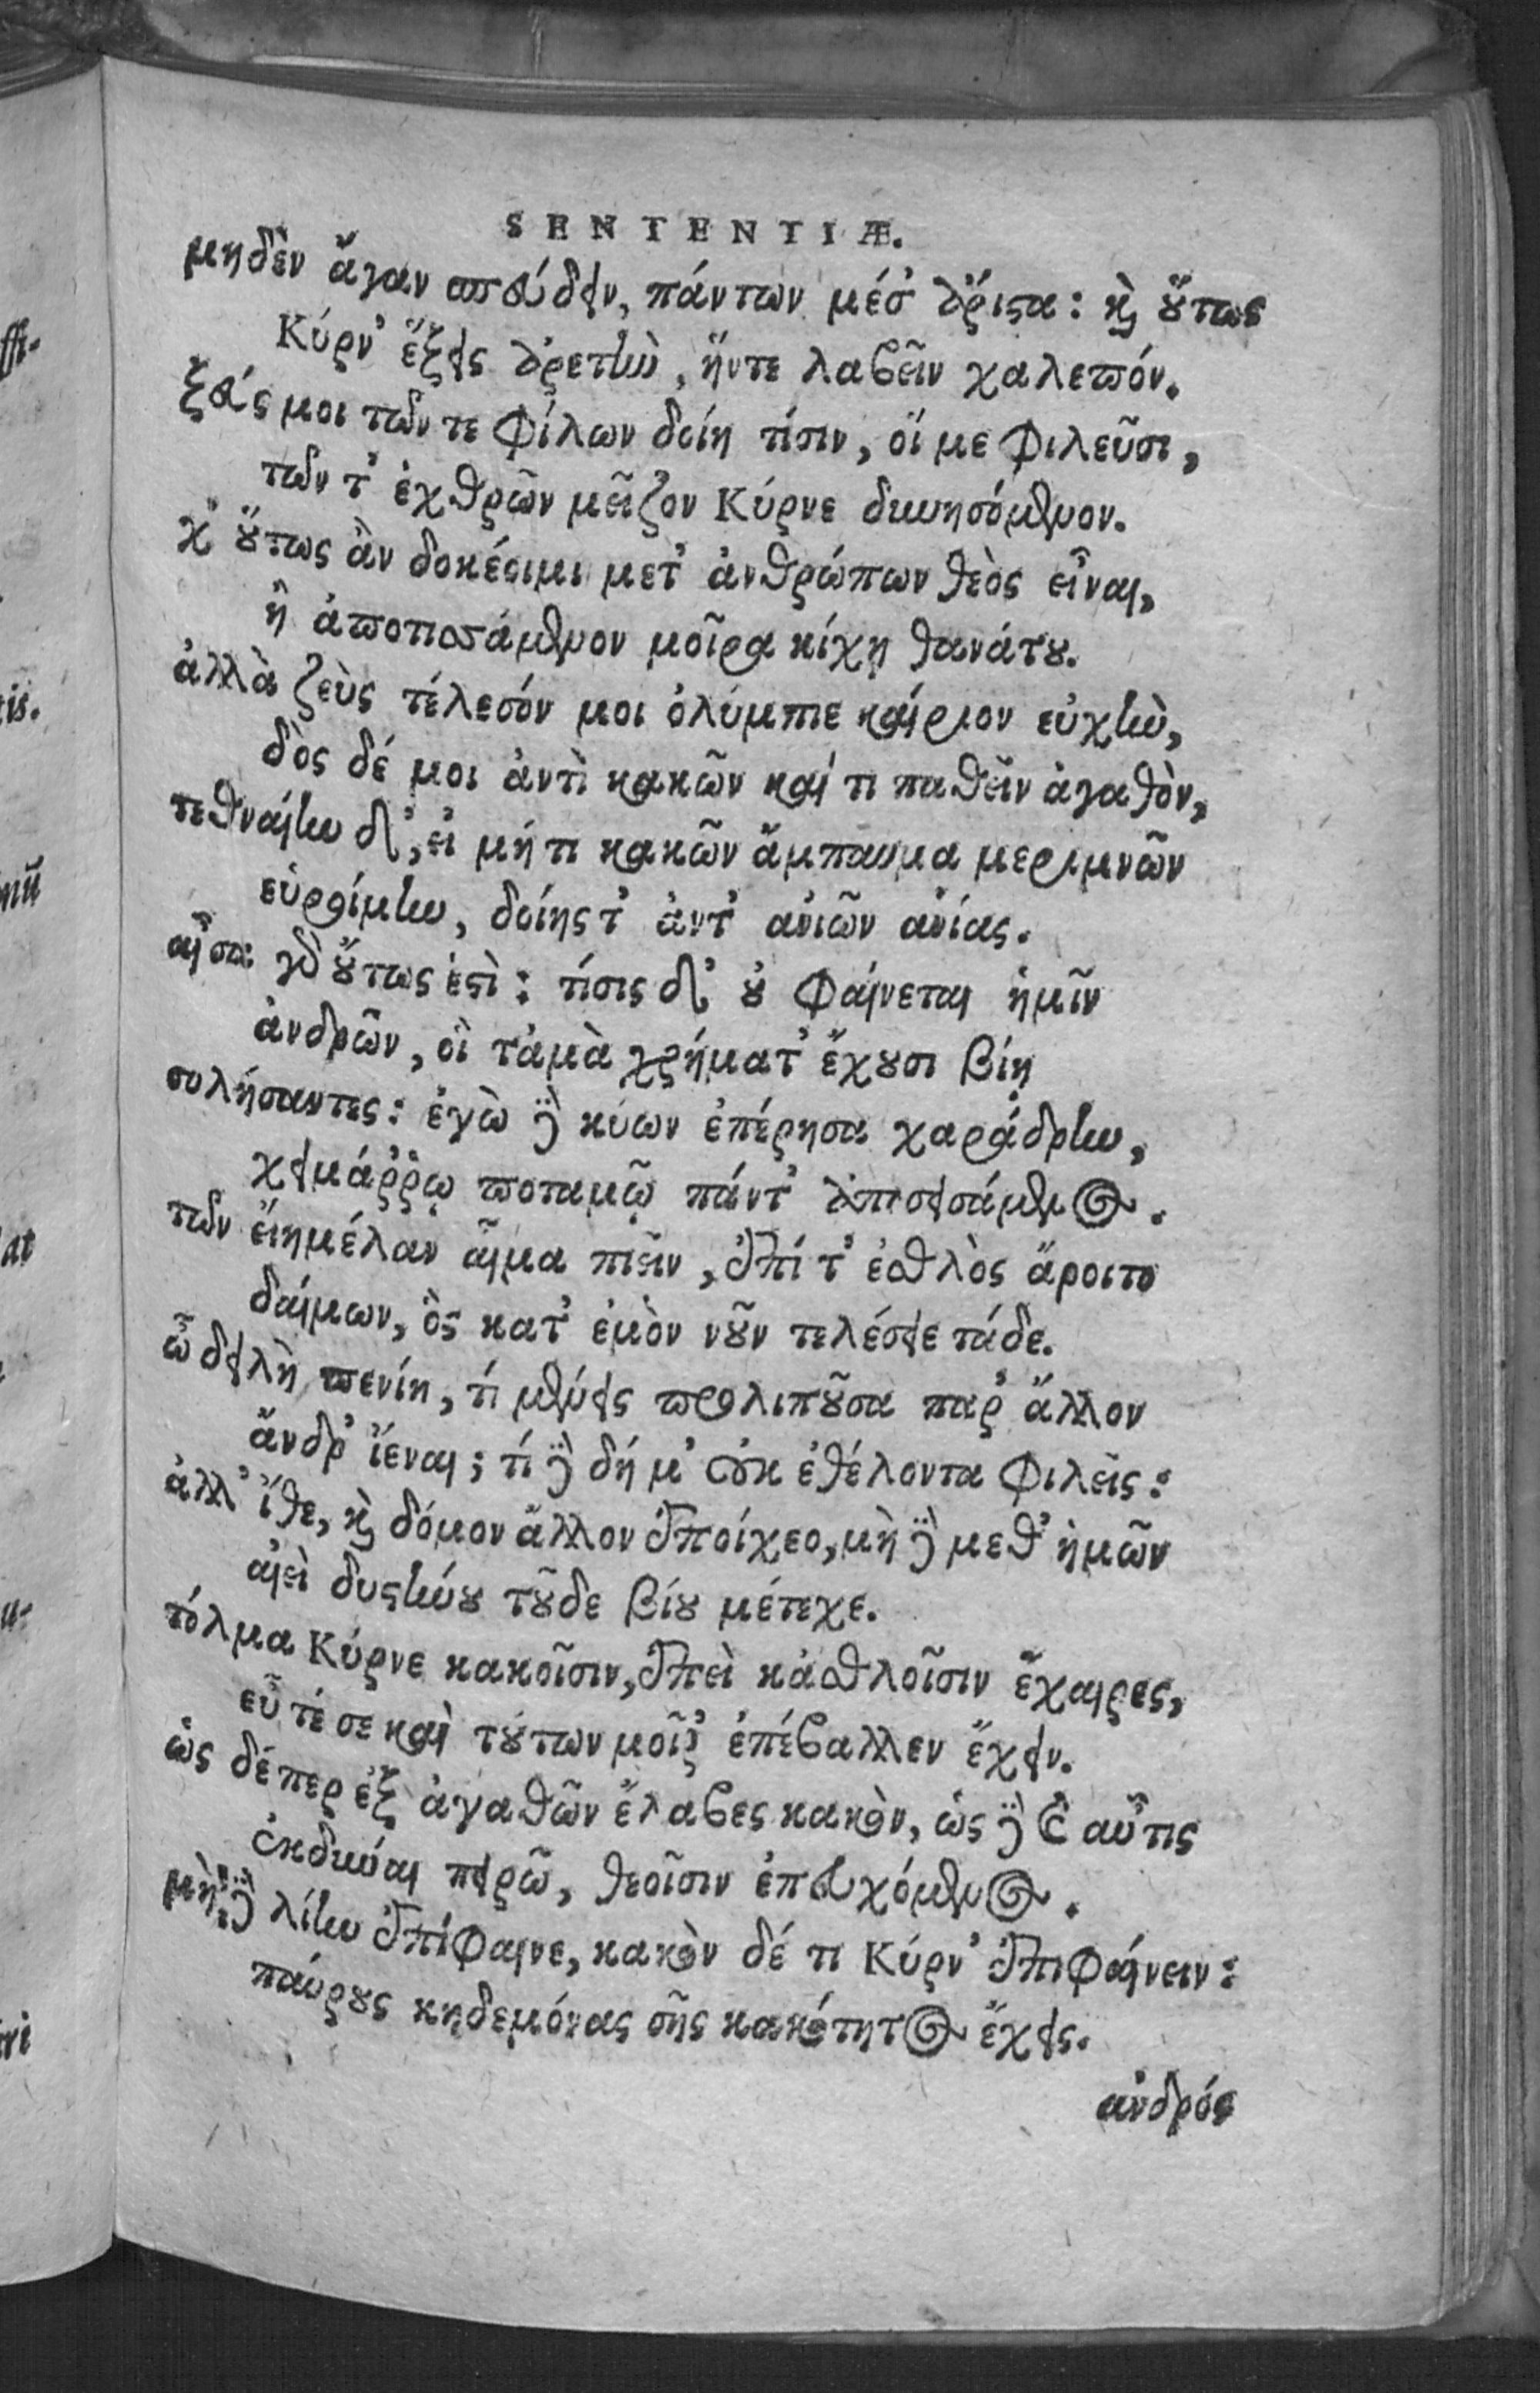 SENTENTIÆ.
μηδὲν ἄγαν σπεύδειν, πάντων μέσ' ἄριστα: καὶ οὕτως
Κύρν' ἕξεις ἀρετὴν, ἥντε λαβεῖν χαλεπόν.
ζεύς μοι τῶν τε φίλων δοίη τίσιν, οἵ με φιλεῦσι,
τῶν τ' ἐχθρῶν μεῖζον Κύρνε δυνησόμενον.
χ' οὕτως ἂν δοκέοιμι μετ' ἀνθρώπων θεὸς εἶναι,
ἢ ἀποτισάμενον μοῖρα κίχῃ θανάτου.
ἀλλὰ ζεὺς τέλεσόν μοι ὀλύμπιε καίριον εὐχὴν,
δὸς δέ μοι ἀντὶ κακῶν καί τι παθεῖν ἀγαθὸν,
τεθναίην δ', εἰ μή τι κακῶν ἄμπαυμα μεριμνῶν
εὑροίμην, δοίης τ' ἀντ' ἀνιῶν ἀνίας.
αἶσα γὰρ οὕτως ἐστὶ: τίσις δ' οὐ φαίνεται ἡμῖν
ἀνδρῶν, οἳ τἀμὰ χρήματ' ἔχουσι βίῃ
συλήσαντες: ἐγὼ δὲ κύων ἐπέρησα χαράδρην,
χειμάῤῥῳ ποταμῷ πάντ' ἀποσεισάμενος.
τῶν εἴη μέλαν αἷμα πιεῖν, ἐπί τ' ἐσθλὸς ἄροιτο
δαίμων, ὃς κατ' ἐμὸν νοῦν τελέσειε τάδε.
ὦ δειλὴ πενίη, τί μένεις προλιποῦσα παρ' ἄλλον
ἄνδρ' ἴεναι; τί δὲ δή μ' οὐκ ἐθέλοντα φιλεῖς:
ἀλλ' ἴθε, καὶ δόμον ἄλλον ἐποίχεο, μὴ δὲ μεθ' ἡμῶν
αἰεὶ δυστήνου τοῦδε βίου μέτεχε.
τόλμα Κύρνε κακοῖσιν, ἐπεὶ κἀσθλοῖσιν ἔχαιρες,
εὖτέ σε καὶ τούτων μοῖρ' ἐπέβαλλεν ἔχειν.
ὡς δέ περ ἐξ ἀγαθῶν ἔλαβες κακὸν, ὡς δὲ καὶ αὖτις
ἐκδῦναι πειρῶ, θεοῖσιν ἐπευχόμενος.
μὴ δὲ λίην ἐπίφαινε, κακὸν δέ τι Κύρν' ἐπιφαίνειν:
παύρους κηδεμόνας σῆς κακότητος ἔχεις.
ἀνδρός